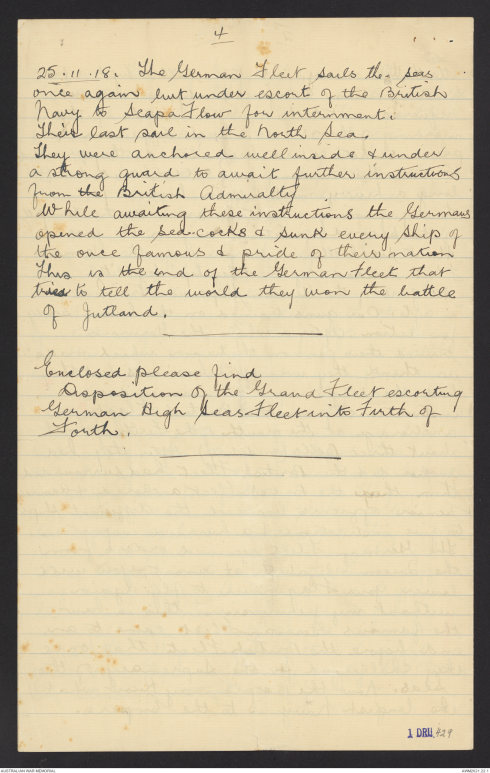 4
25.11.18. The German Fleet sails the seas
once again but under escort of the British
Navy to Scapa Flow for internment.
Their last sail in the North Sea.
They were anchored well inside & under
a strong guard to await further instructions
from the British Admiralty
While awaiting these instructions the Germans
opened the sea-cocks & sunk every ship of
the once famous & pride of their nation
This is the end of the German Fleet that
tried to tell the world they won the battle
of Jutland.
Enclosed please find
Disposition of the Grand Fleet escorting
German High Seas Fleet into Firth of
Forth.
1 DRL 429
AUSTRALIAN WAR MEMORIAL